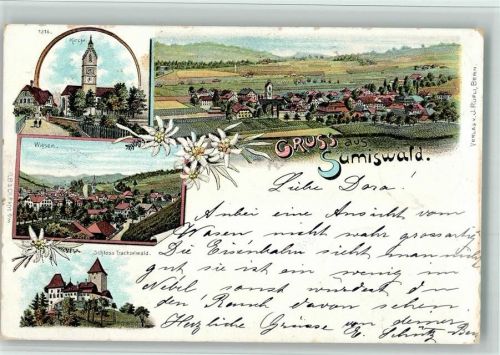 1216.
Kirche
Gruss aus
Sumiswald.
Verlag v. J. Rüfli, Bern.
Wasen.
Schloss Trachselwald.
Liebe Dora!
Anbei eine Ansicht vom
Wasen nicht wahr grossartig
Die Eisenbahn sieht man nicht
gut sie ist ein wenig im
Nebel sonst würdest du
den Rauch davon sehen
Herzliche Grüsse von deiner
E. Schütz